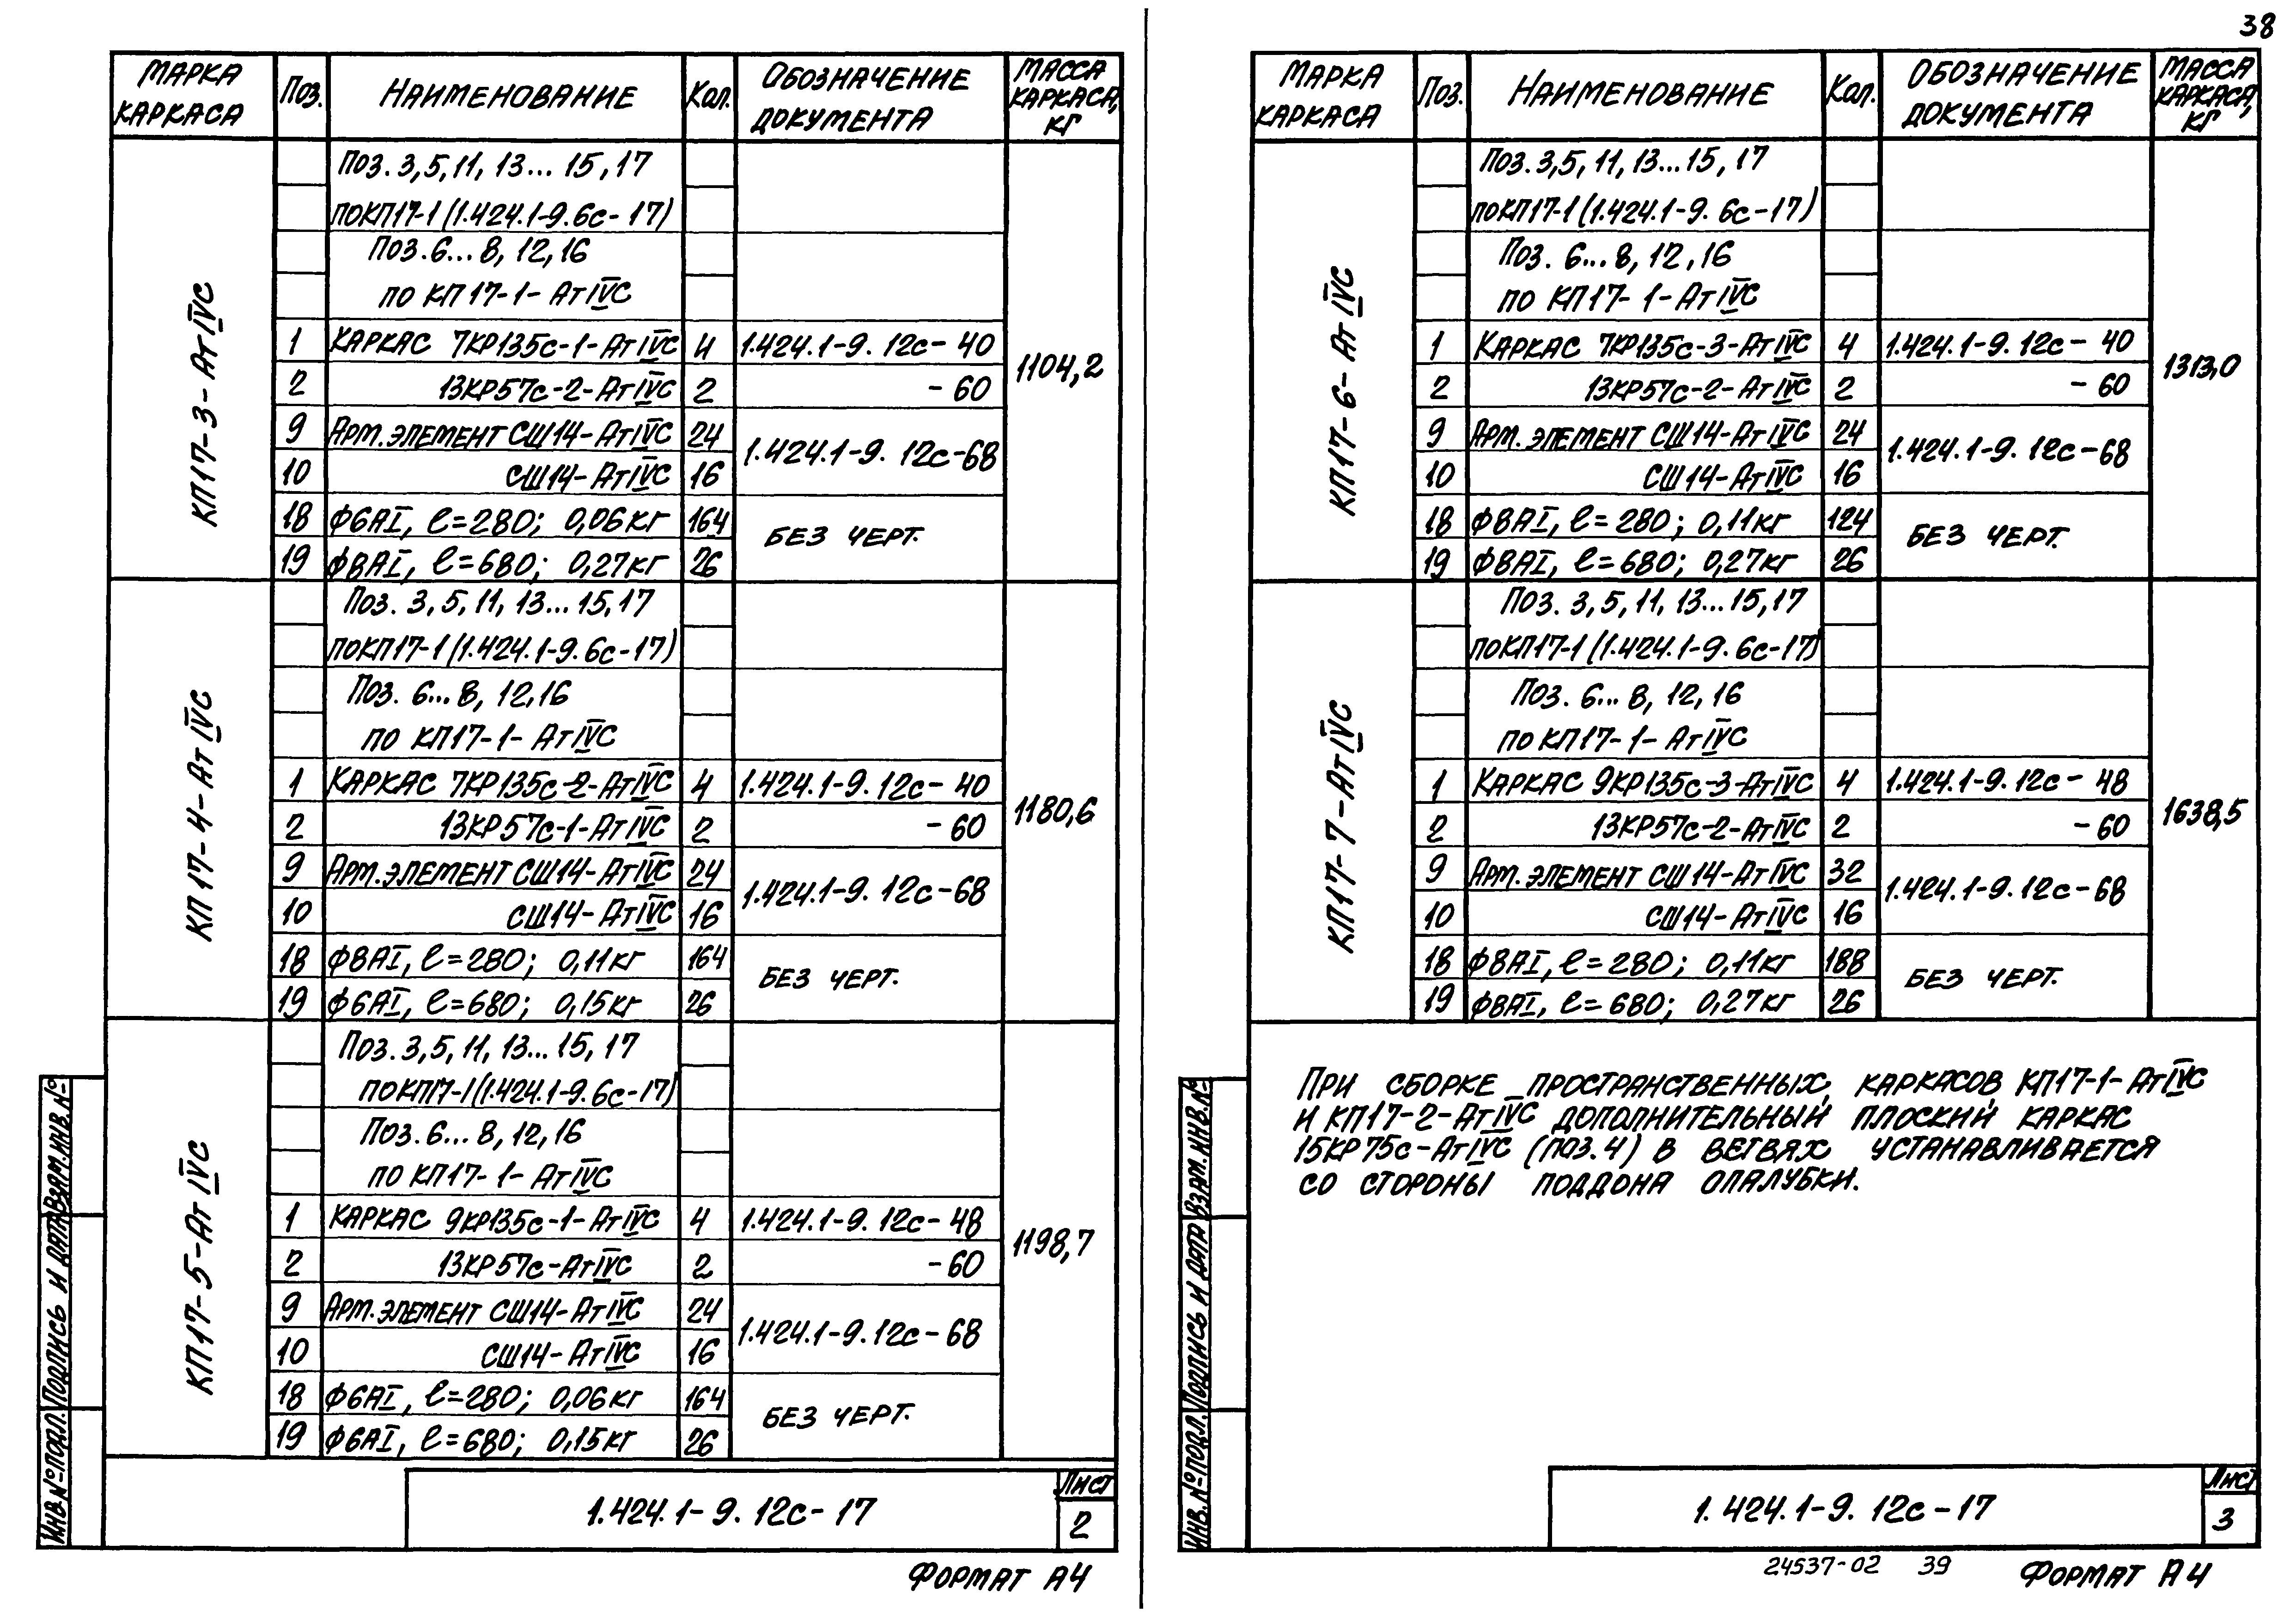 38
МАРКА КАРКАСА | ПОЗ. | НАИМЕНОВАНИЕ | КОЛ. | ОБОЗНАЧЕНИЕ ДОКУМЕНТА | МАССА КАРКАСА, КГ
КП17-3-АтIVС | 1104,2
ПОЗ. 3,5,11,13...15,17
ПО КП17-1 (1.424.1-9.6с-17)
ПОЗ. 6...8, 12, 16
ПО КП17-1-АтIVС
1 | КАРКАС 7КР135с-1-АтIVС | 4 | 1.424.1-9.12с-40
2 | 13КР57с-2-АтIVС | 2 | -60
9 | АРМ. ЭЛЕМЕНТ СШ14-АтIVС | 24 | 1.424.1-9.12с-68
10 | СШ14-АтIVС | 16
18 | Ф6АI, ℓ=280; 0,06кг | 164 | БЕЗ ЧЕРТ.
19 | Ф8АI, ℓ=680; 0,27кг | 26
КП17-4-АтIVС | 1180,6
ПОЗ. 3,5,11,13...15,17
ПО КП17-1 (1.424.1-9.6с-17)
ПОЗ. 6...8, 12, 16
ПО КП17-1-АтIVС
1 | КАРКАС 7КР135с-2-АтIVС | 4 | 1.424.1-9.12с-40
2 | 13КР57с-1-АтIVС | 2 | -60
9 | АРМ. ЭЛЕМЕНТ СШ14-АтIVС | 24 | 1.424.1-9.12с-68
10 | СШ14-АтIVС | 16
18 | Ф8АI, ℓ=280; 0,11кг | 164 | БЕЗ ЧЕРТ.
19 | Ф6АI, ℓ=680; 0,15кг | 26
КП17-5-АтIVС | 1198,7
ПОЗ. 3,5,11,13...15,17
ПО КП17-1 (1.424.1-9.6с-17)
ПОЗ. 6...8, 12, 16
ПО КП17-1-АтIVС
1 | КАРКАС 9КР135с-1-АтIVС | 4 | 1.424.1-9.12с-48
2 | 13КР57с-АтIVС | 2 | -60
9 | АРМ. ЭЛЕМЕНТ СШ14-АтIVС | 24 | 1.424.1-9.12с-68
10 | СШ14-АтIVС | 16
18 | Ф6АI, ℓ=280; 0,06кг | 164 | БЕЗ ЧЕРТ.
19 | Ф6АI, ℓ=680; 0,15кг | 26
ИНВ.№ПОДЛ. ПОДПИСЬ И ДАТА ВЗАМ.ИНВ.№
1.424.1-9.12с-17
ЛИСТ
2
ФОРМАТ А4
МАРКА КАРКАСА | ПОЗ. | НАИМЕНОВАНИЕ | КОЛ. | ОБОЗНАЧЕНИЕ ДОКУМЕНТА | МАССА КАРКАСА, КГ
КП17-6-АтIVС | 1313,0
ПОЗ. 3,5,11,13...15,17
ПО КП17-1 (1.424.1-9.6с-17)
ПОЗ. 6...8, 12, 16
ПО КП17-1-АтIVС
1 | КАРКАС 7КР135с-3-АтIVС | 4 | 1.424.1-9.12с-40
2 | 13КР57с-2-АтIVС | 2 | -60
9 | АРМ. ЭЛЕМЕНТ СШ14-АтIVС | 24 | 1.424.1-9.12с-68
10 | СШ14-АтIVС | 16
18 | Ф8АI, ℓ=280; 0,11кг | 124 | БЕЗ ЧЕРТ.
19 | Ф8АI, ℓ=680; 0,27кг | 26
КП17-7-АтIVС | 1638,5
ПОЗ. 3,5,11,13...15,17
ПО КП17-1 (1.424.1-9.6с-17)
ПОЗ. 6...8, 12, 16
ПО КП17-1-АтIVС
1 | КАРКАС 9КР135с-3-АтIVС | 4 | 1.424.1-9.12с-48
2 | 13КР57с-2-АтIVС | 2 | -60
9 | АРМ. ЭЛЕМЕНТ СШ14-АтIVС | 32 | 1.424.1-9.12с-68
10 | СШ14-АтIVС | 16
18 | Ф8АI, ℓ=280; 0,11кг | 188 | БЕЗ ЧЕРТ.
19 | Ф8АI, ℓ=680; 0,27кг | 26
ПРИ СБОРКЕ ПРОСТРАНСТВЕННЫХ КАРКАСОВ КП17-1-АтIVС
И КП17-2-АтIVС ДОПОЛНИТЕЛЬНЫЙ ПЛОСКИЙ КАРКАС
15КР75с-АтIVС (ПОЗ.4) В ВЕТВЯХ УСТАНАВЛИВАЕТСЯ
СО СТОРОНЫ ПОДДОНА ОПАЛУБКИ.
ИНВ.№ПОДЛ. ПОДПИСЬ И ДАТА ВЗАМ.ИНВ.№
1.424.1-9.12с-17
ЛИСТ
3
24537-02 39
ФОРМАТ А4